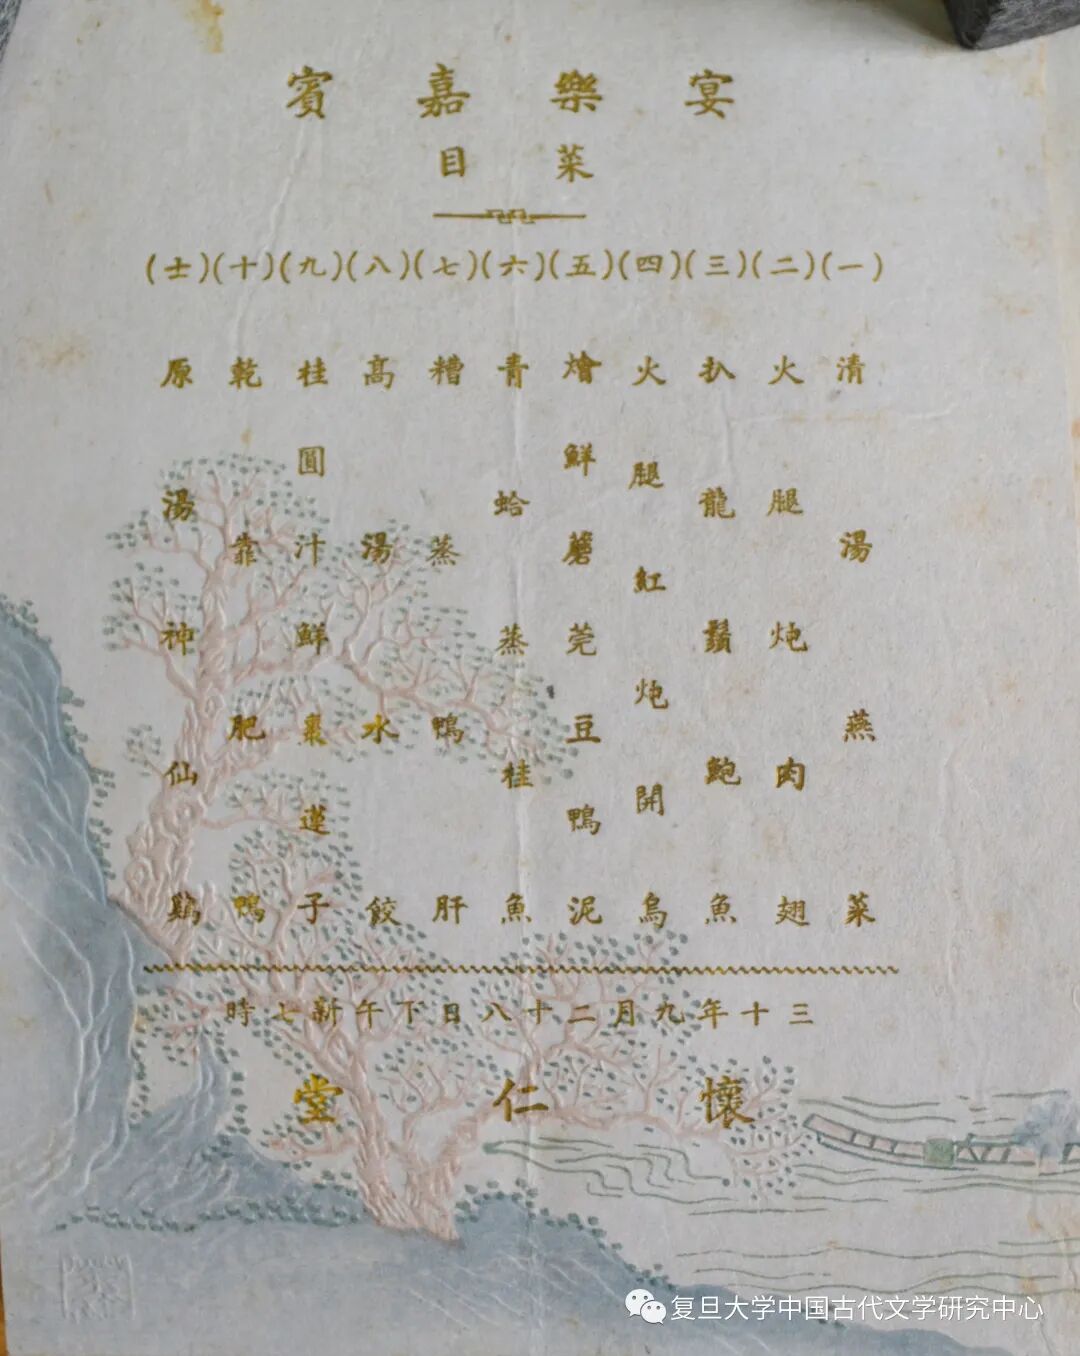 宴樂嘉賓
菜目
(一)(二)(三)(四)(五)(六)(七)(八)(九)(十)(十一)
清湯燕菜
火腿炖肉翅
扒龍鬚鮑魚
火腿紅炖開烏
燴鮮蘑莞豆鴨泥
青蛤蒸桂魚
糟蒸鴨肝
高湯水餃
桂圓汁鮮棗蓮子
乾靠肥鴨
原湯神仙鷄
三十年九月二十八日下午新七時
懷仁堂
复旦大学中国古代文学研究中心